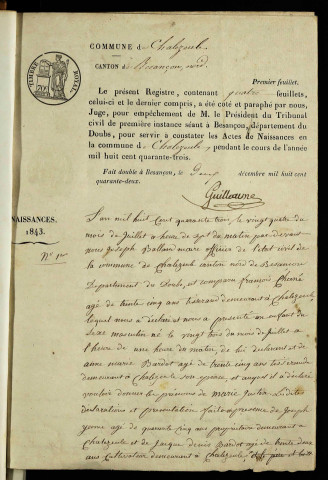 TIMBRE ROYAL
COMMUNE de Chalezeule
CANTON de Besançon, nord.
Premier feuillet.
Le présent Registre, contenant quatre feuillets,
celui-ci et le dernier compris, a été côté et paraphé par nous,
Juge, pour empêchement de M. le Président du Tribunal
civil de première instance séant à Besançon, département du
Doubs, pour servir à constater les Actes de Naissances en
la commune de Chalezeule, pendant le cours de l'année
mil huit cent quarante-trois.
Fait double à Besançon, le décembre mil huit cent
quarante-deux.
Guillaume
NAISSANCES.
1843.
N° 1er
L'an mil huit cent quarante trois le vingt quatre du
mois de Juillet à heure de sept du matin par devant
nous Joseph Balland maire officier de l'état civil de
la commune de Chalezeule canton nord de Besancon
Departement du Doubs, est comparu francois
agé de trente cinq ans demeurant à Chalezeule
lequel nous a déclaré et nous a presenté un enfant du
sexe masculin né le vingt trois du mois de Juillet a
l'heure de une heure du matin, de lui declarant et de
anne marie Bardot agé de trente cinq ans
demeurant à Chalezeule son epouse, et auquel il a déclaré
vouloir donner les prenoms de marie Justin Lesdites
declarations et presentation faite en presence de Joseph
agé de quarante cinq ans proprietaire demeurant a
Chalezeule et de Jacque Denis Bardot agé de trente deux
ans Cultivateur demeurant a Chalezeule